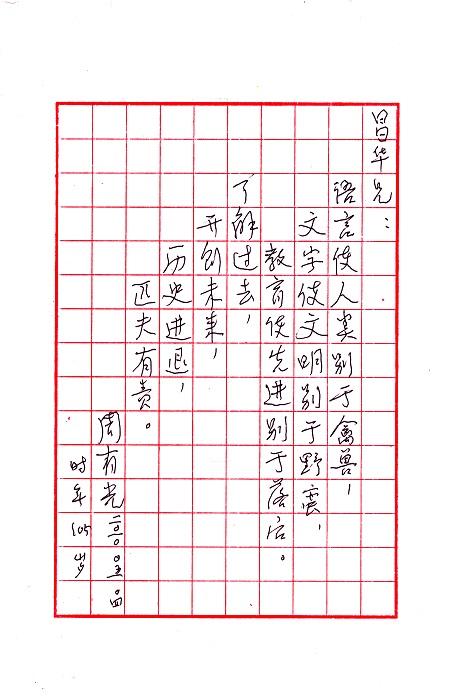 昌华兄：
语言使人类别于禽兽，
文字使文明别于野蛮，
教育使先进别于落后。
了解过去，
开创未来，
历史进退，
匹夫有责。
周有光
时年105岁